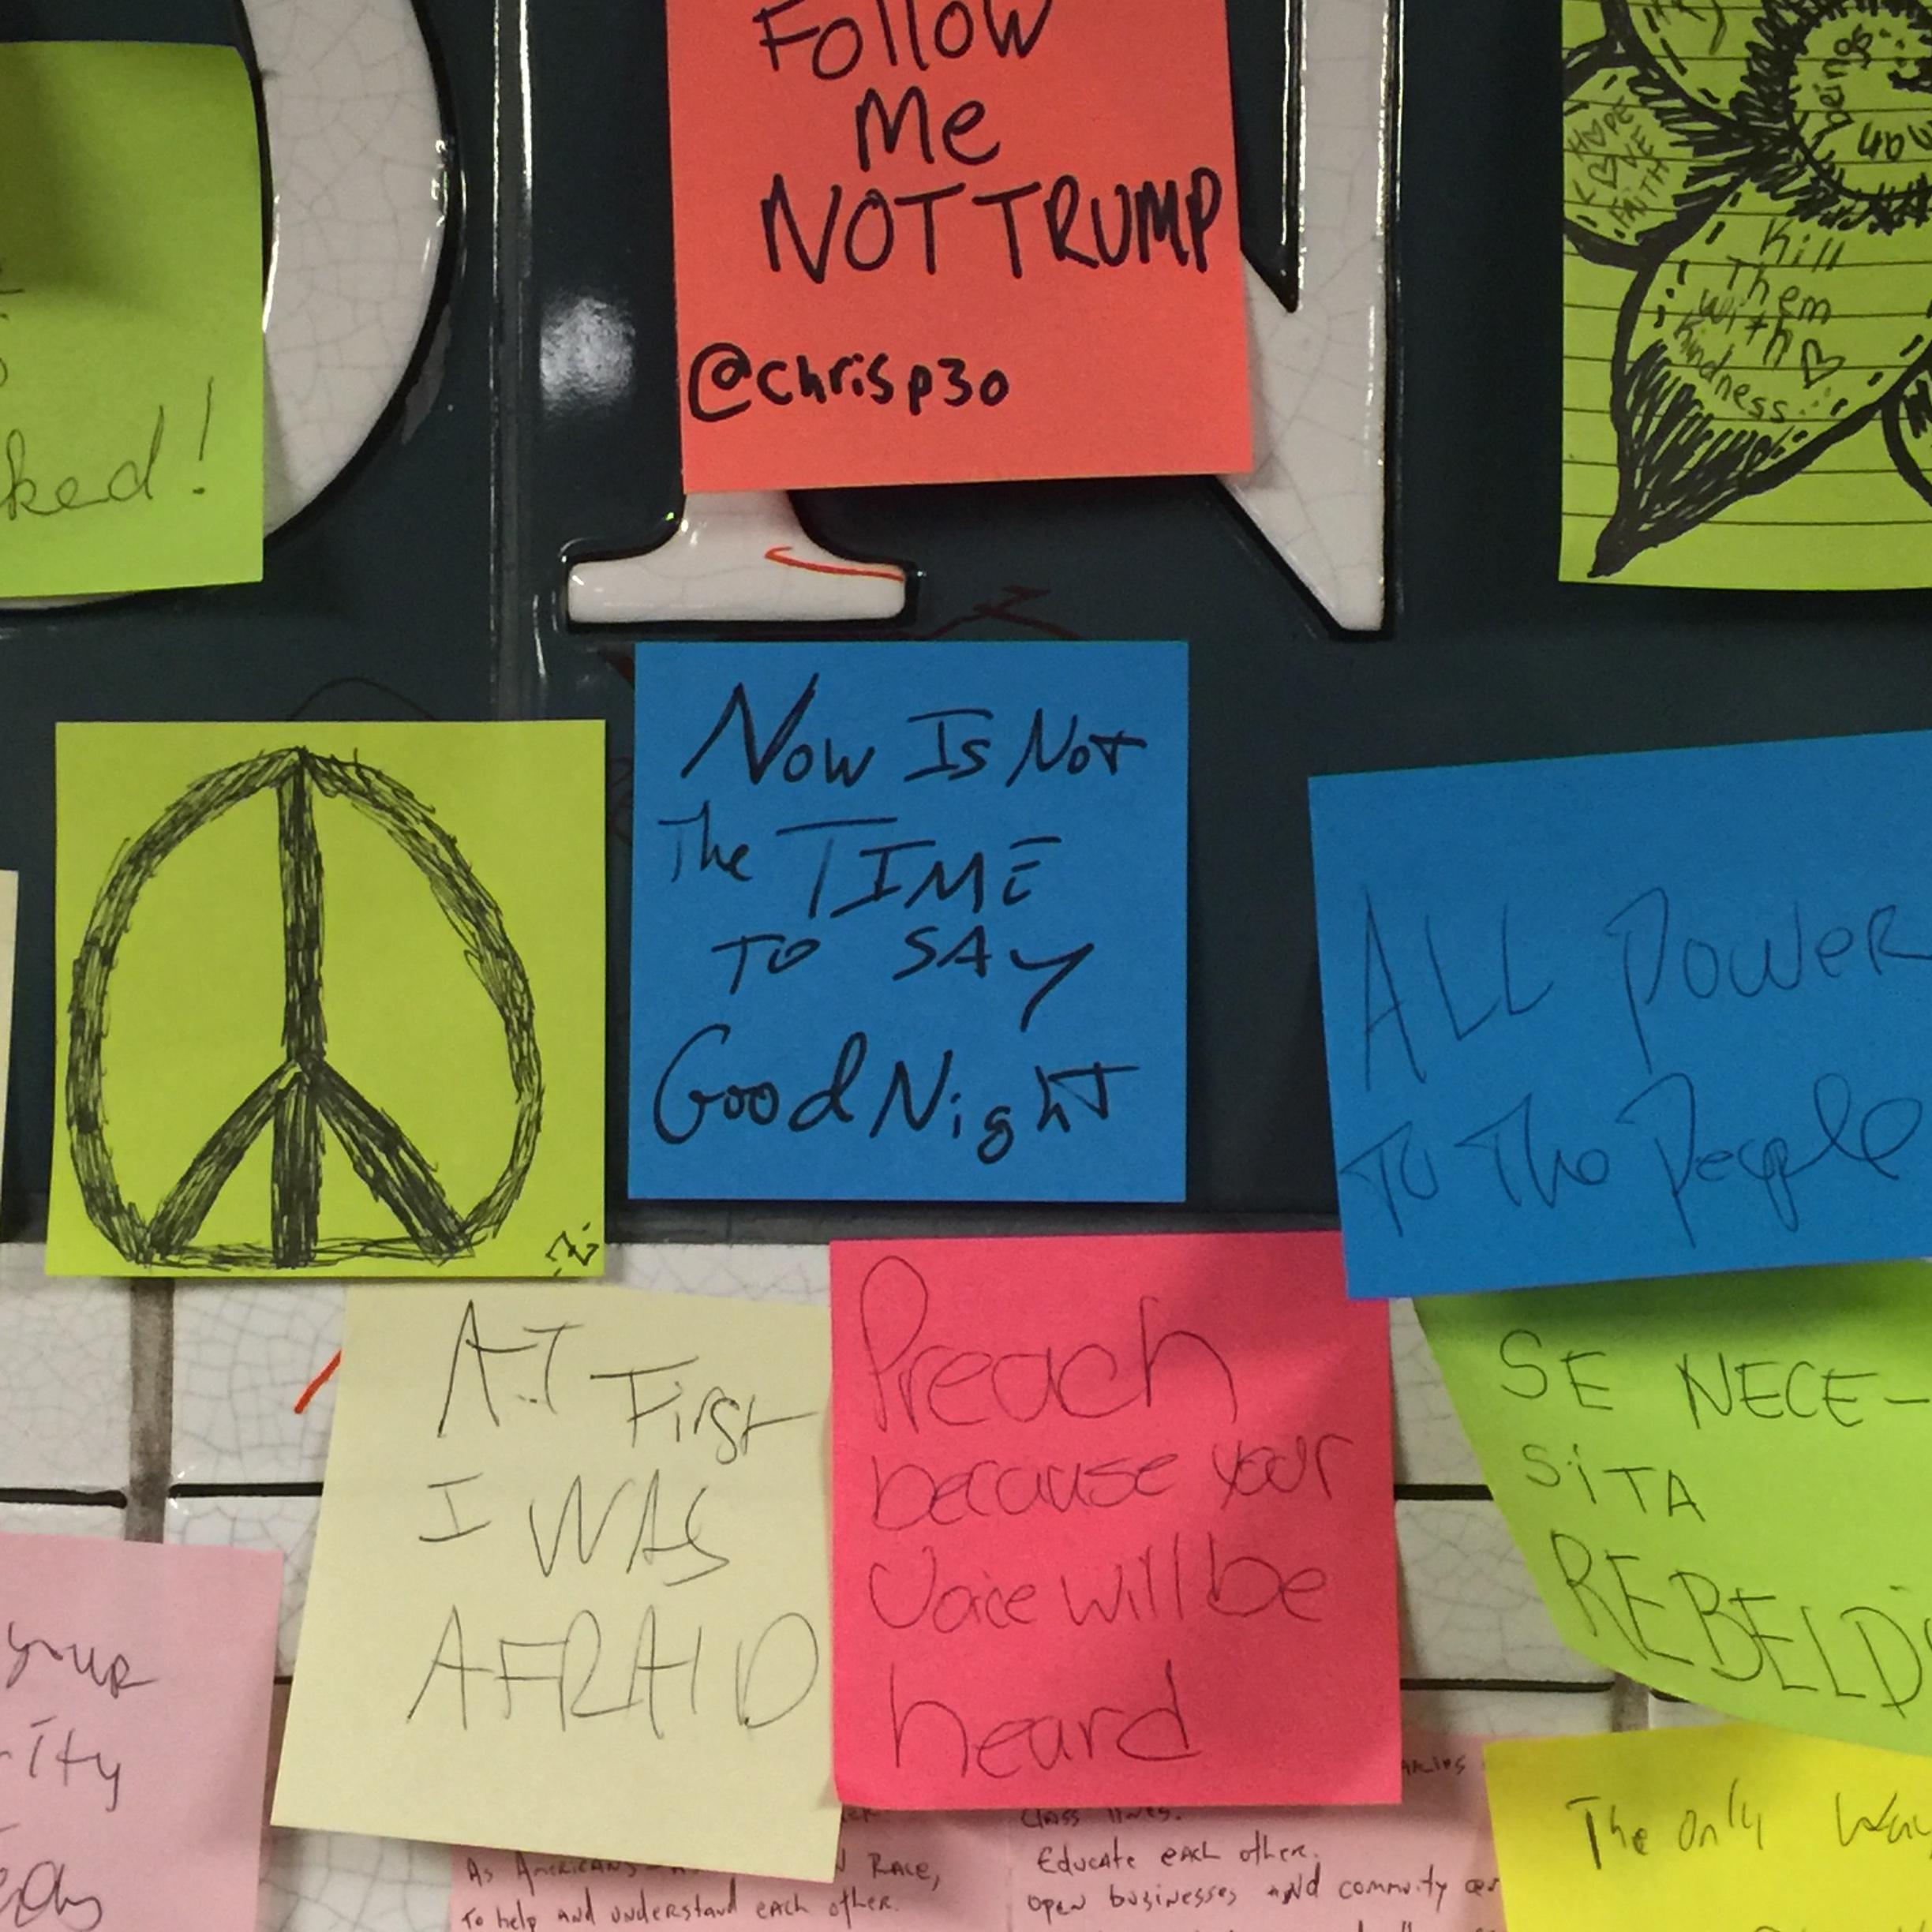 Follow
Me
NOT TRUMP
@chrisp30
ked!
HOPE
LOVE
FAITH
beings
Kill
Them
with
kindness
Now Is Not
The TIME
TO SAY
Good Night
ALL Power
To The People
AT First
I WAS
AFRAID
Preach
because your
Voice will be
heard
SE NECE-
SiTA
REBELDí
your
ity
The only Way
As Americans
Race,
To help and understand each other.
class lines.
Educate each other.
open businesses and